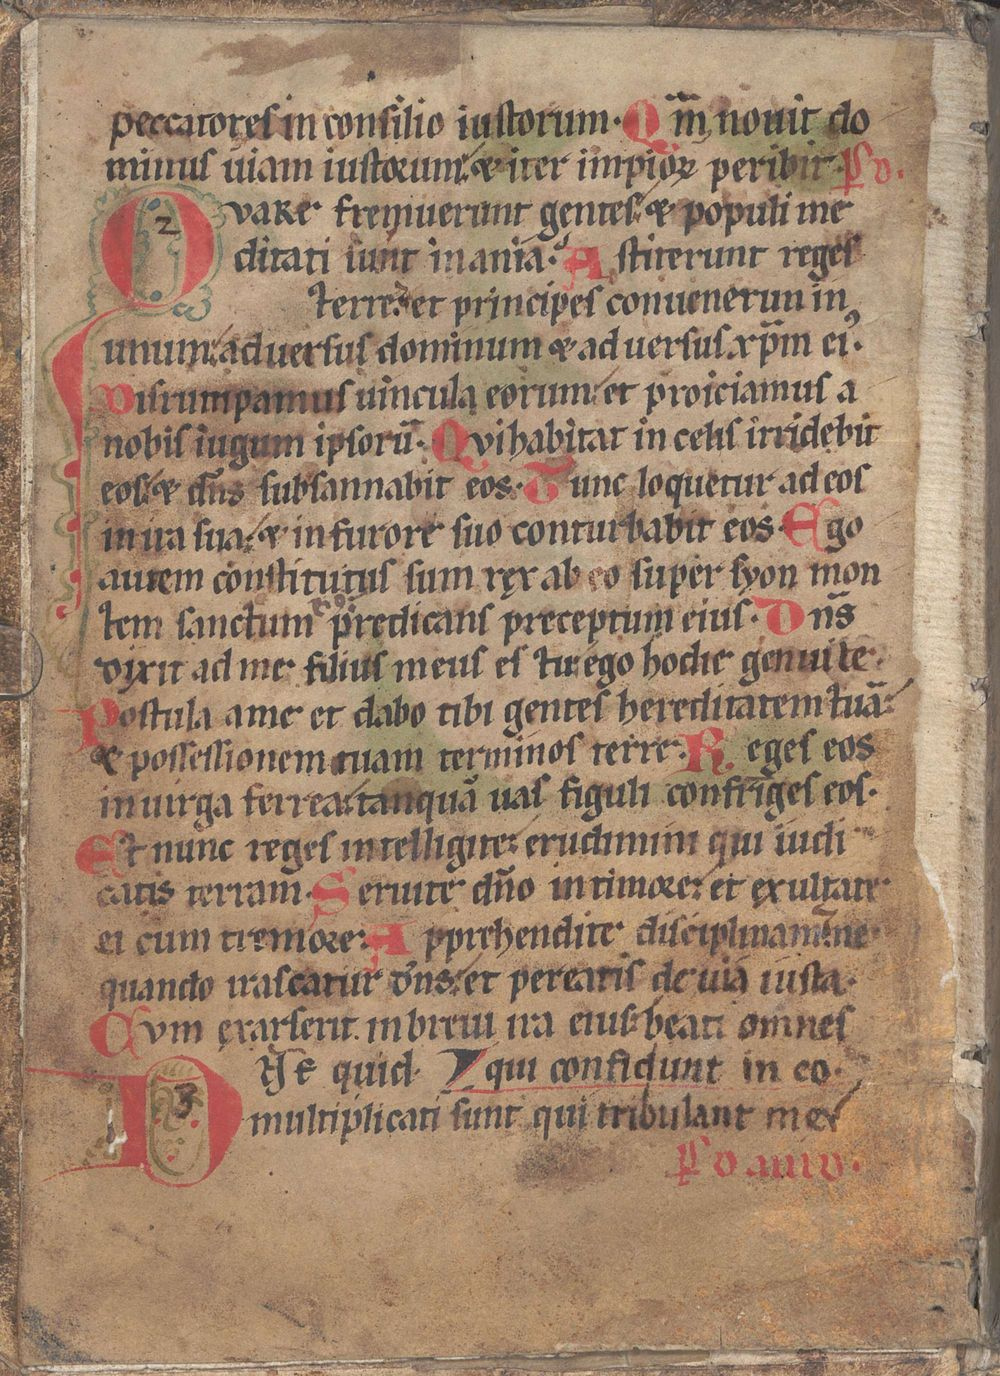 peccatores in consilio iustorum. Qm̄ nouit do
minus uiam iustorum: & iter impioꝝ peribit. ps D.
QVARE fremuerunt gentes: & populi me
ditati sunt inania. Astiterunt reges
terre: et principes conuenerun in
unum: aduersus dominum & aduersus xp̄m eiꝰ.
Disrumpamus uincula eorum: et proiciamus a
nobis iugum ipsorū. Qvi habitat in celis irridebit
eos: & dn̄s subsannabit eos. Tunc loquetur ad eos
in ira sua: & in furore suo conturbabit eos. Ego
autem constitutus sum rex ab eo super syon mon
tem sanctum eiꝰ predicans preceptum eius. Dn̄s
dixit ad me filius meus es tu: ego hodie genui te.
Postula a me et dabo tibi gentes hereditatem tuā:
& possessionem tuam terminos terre. Reges eos
in uirga ferrea: tanquā uas figuli confringes eos.
Et nunc reges intelligite: erudimini qui iudi
catis terram. Seruite dn̄o in timore: et exultate
ei cum tremore. Apprehendite disciplinam: ne
quando irascatur dn̄s: et pereatis de uia iusta.
Cvm exarserit in breui ira eius: beati omnes
DN̄E quid qui confidunt in eo.
multiplicati sunt qui tribulant me: